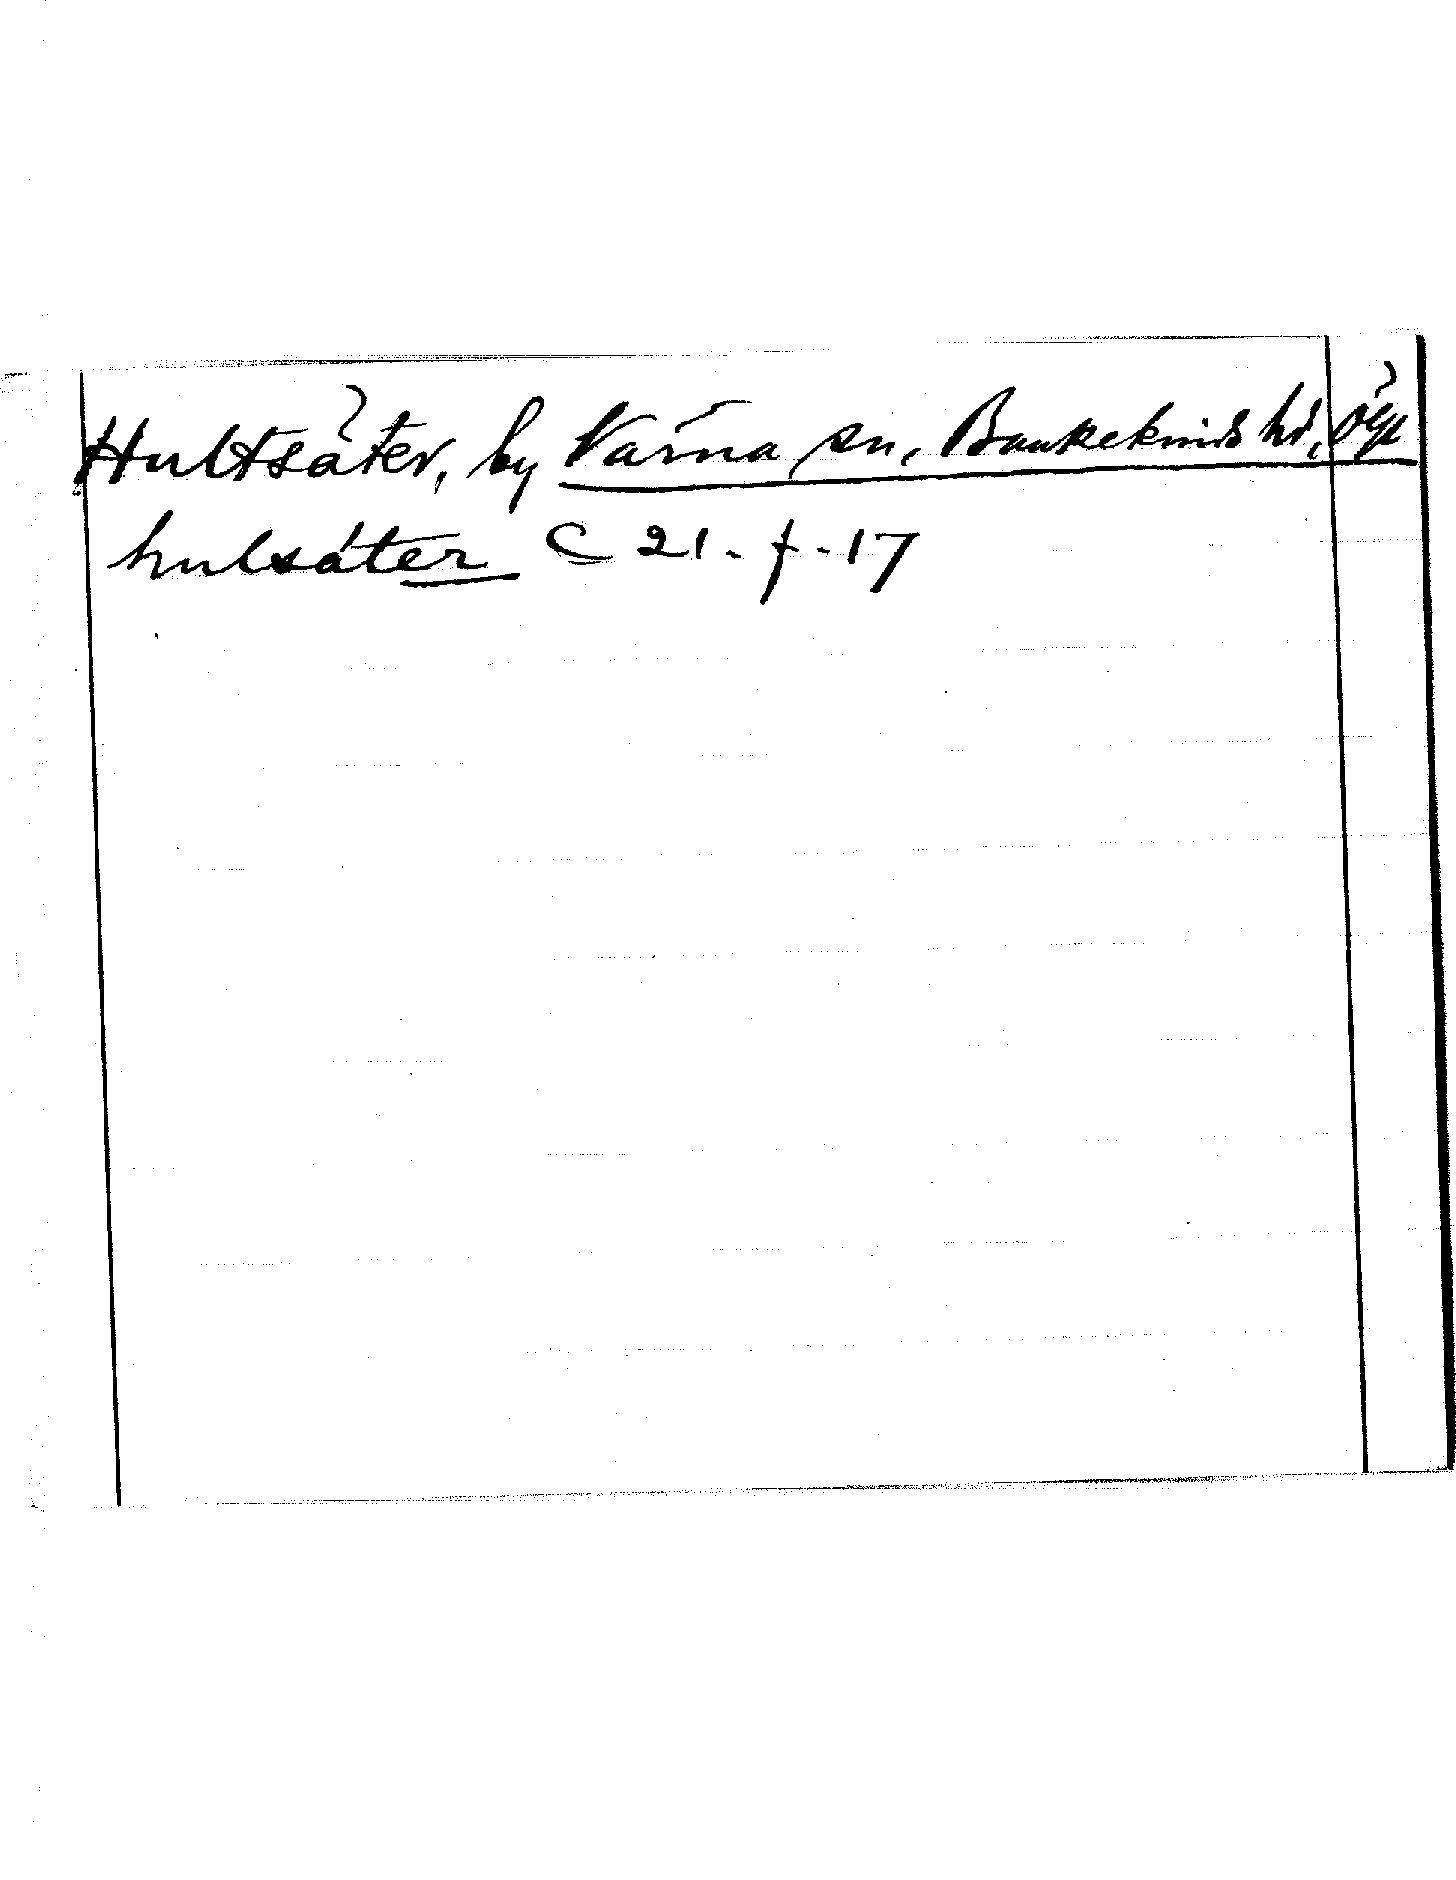 Hultsäter, by Värna sn, Bankekinds hd, Ögl
hulsäter C 21-f-17